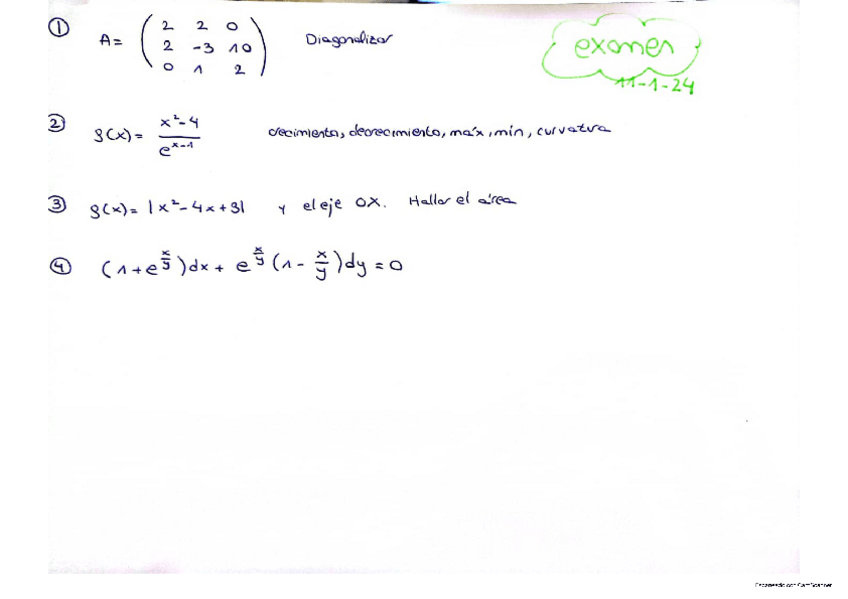 ① A = ( 2 2 0 Diagonalizar examen
2 -3 10
0 1 2 ) 11-1-24
② f(x) = x²-4 / e^(x-1) crecimiento, decrecimiento, máx, mín, curvatura
③ f(x) = |x²-4x+3| y el eje OX. Hallar el área
④ (1+e^(x/y))dx + e^(x/y)(1-x/y)dy = 0
Escaneado con CamScanner